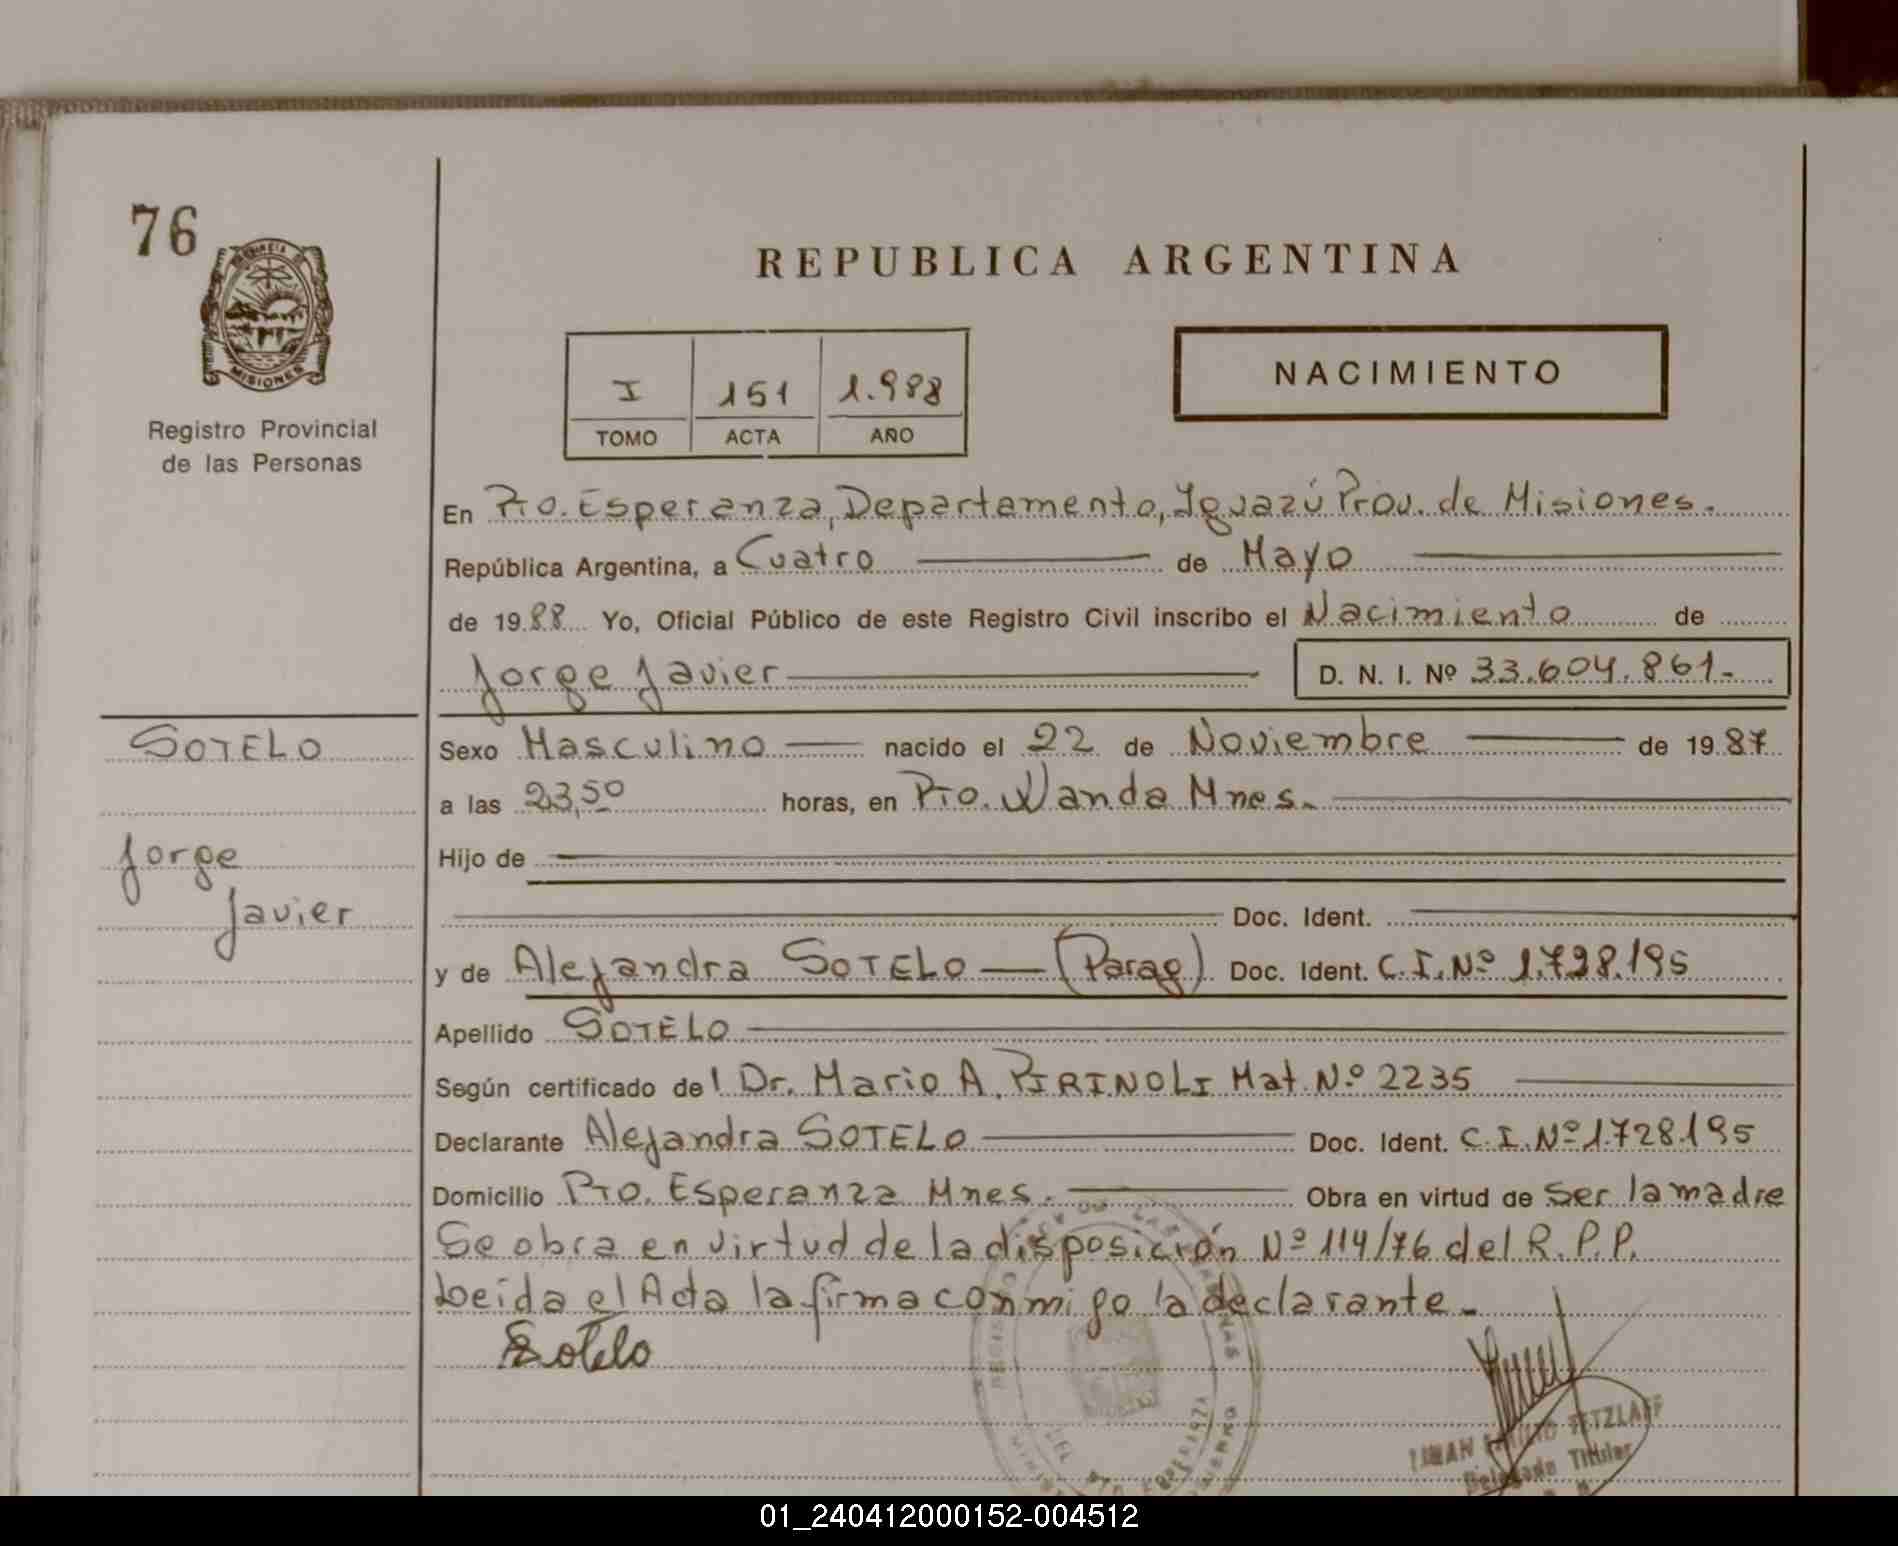 76
PROVINCIA DE
MISIONES
Registro Provincial
de las Personas
REPUBLICA ARGENTINA
I 151 1.988
TOMO ACTA AÑO
NACIMIENTO
En Pto. Esperanza, Departamento, Iguazú Prov. de Misiones.
República Argentina, a Cuatro de Mayo
de 1988 Yo, Oficial Público de este Registro Civil inscribo el Nacimiento de
Jorge Javier D. N. I. Nº 33.604.861.-
SOTELO
Jorge
Javier
Sexo Masculino nacido el 22 de Noviembre de 1987
a las 23,50 horas, en Pto. Wanda Mnes.
Hijo de
Doc. Ident.
y de Alejandra SOTELO (Parag) Doc. Ident. C.I.Nº 1.728.195
Apellido SOTELO
Según certificado del Dr. Mario A. PIRINOLI Mat. N.º 2235
Declarante Alejandra SOTELO Doc. Ident. C.I.Nº 1.728.195
Domicilio Pto. Esperanza Mnes. Obra en virtud de ser la madre
Se obra en virtud de la disposición Nº 114/76 del R.P.P.
Leida el Acta la firma conmigo la declarante.-
Sotelo
TETZLAFF
Delegado Titular
01_240412000152-004512